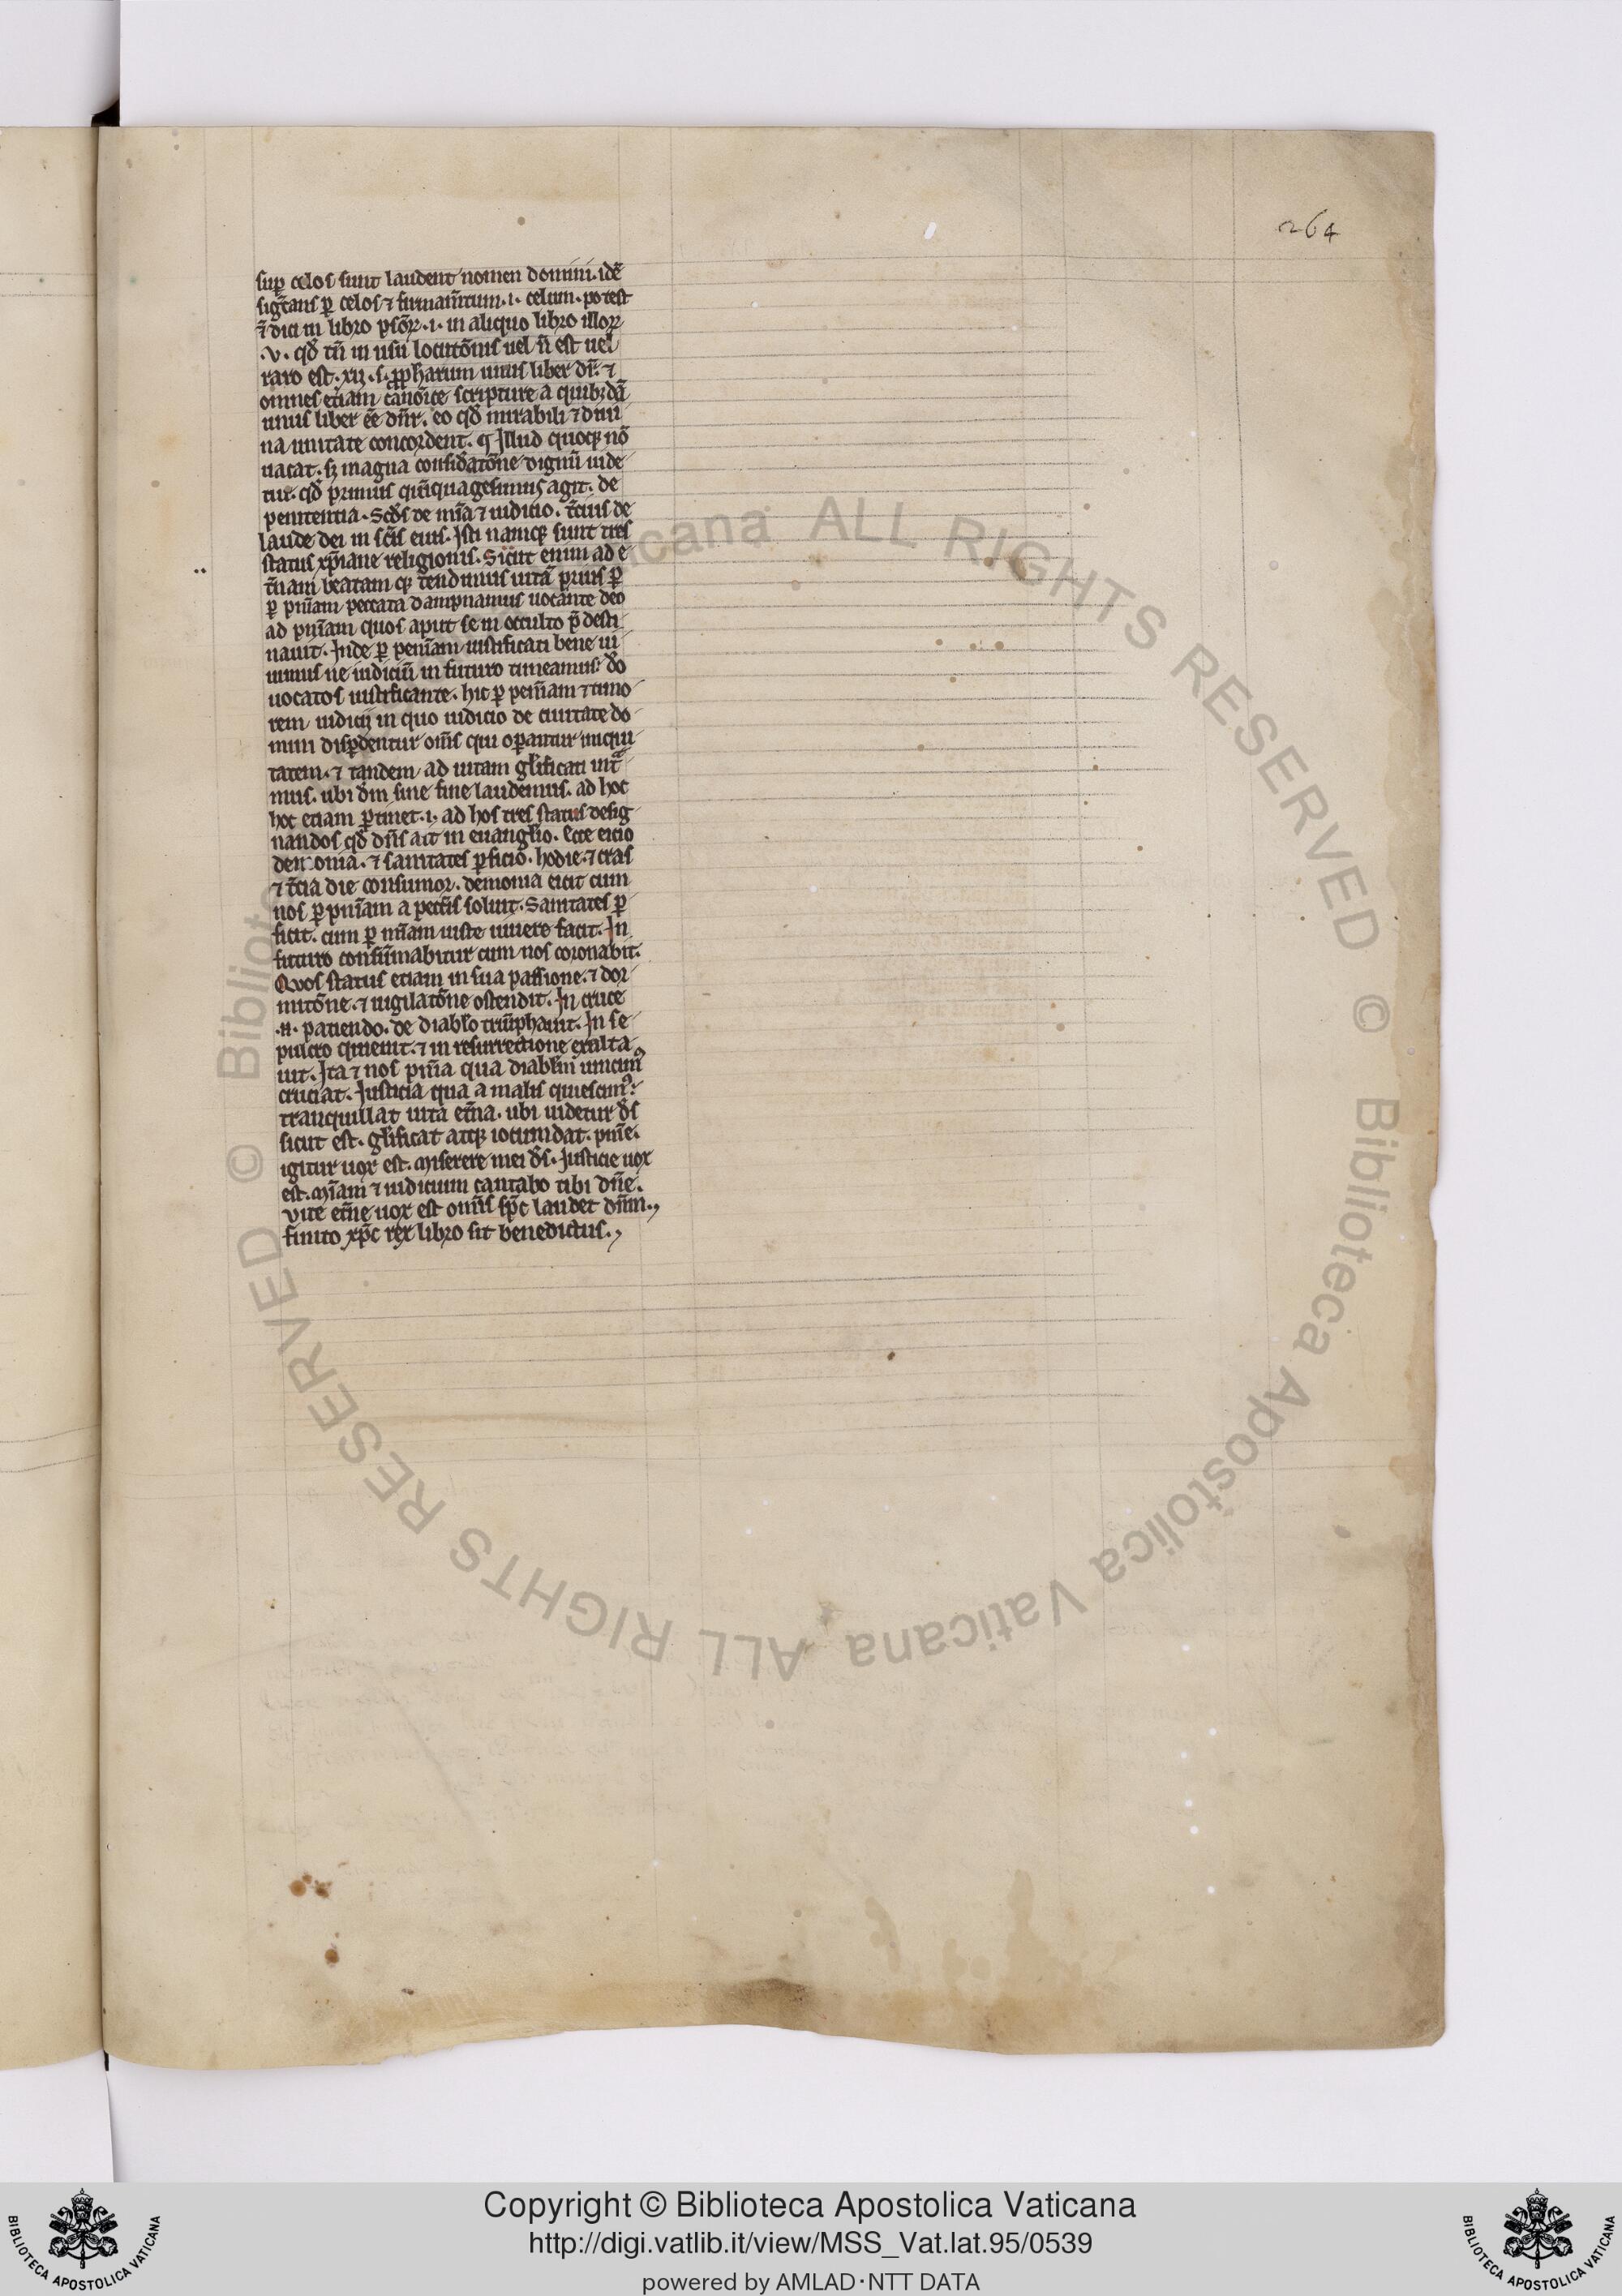 264
sup celos sunt laudent nomen domini. idē
sig̃tans ꝑ celos ⁊ firmam̃tum .i. celum. potest
⁊̃ dici in libro ps̃oꝝ .i. in aliquo libro illoꝝ
.v. qđ tñ in usu locutõnis uel ñ est uel
raro est. xij. s. ꝓpharum unus liber dr̃. ⁊
omnes etiam canõice scripture a quibꝫdã
unus liber eē dñr. eo qđ mirabili ⁊ diui
na unitate concordent. ¶ Illud quoqꝫ nõ
uacat. sꝫ magna consid̃atõne dignũ uide
tur. qđ primus qũiquagesimus agit. de
penitentia. Scđs de mĩa ⁊ iudicio. t̃cius de
laude dei in sc̃is eius. Isti namqꝫ sunt tres
status xp̃iane religionis. Sicut enim ad e
t̃nam beatam qꝫ tendimus uitã prius ꝑ
ꝑ pnĩam peccata dampnamus uocante deo
ad pnĩam quos aput se in occulto p̃desti
nauit. Inde ꝑ penĩam iustificati bene ui
uimus ne iudiciũ in futuro timeamus. dõ
uocatos iustificante. hic ꝑ penĩam ⁊ timo
rem iudicij in quo iudicio de ciuitate do
mini disꝑdentur om̃s qui oꝑantur iniqui
tatem. ⁊ tandem ad uitam gl̃ificati int̃
mus. ubi dm̃ sine fine laudemus. ad hoc
hoc etiam ꝑtinet .i. ad hos tres status desig
nandos qđ dñs ait in euangl̃io. Ecce eicio
demonia. ⁊ sanitates ꝑficio. hodie. ⁊ cras
⁊ t̃cia die consumor. demonia eicit cum
nos ꝑ pnĩam a pecc̃is soluit. Sanitates ꝑ
ficit. cum ꝑ mĩam iuste uiuere facit. In
futuro consũmabitur cum nos coronabit.
Quos status etiam in sua passione. ⁊ dor
mitõne. ⁊ uigilatõne ostendit. In cruce
.n. patiendo. de diabl̃o triũphauit. In se
pulcro quieuit. ⁊ in resurrectione exulta
uit. Ita ⁊ nos pnĩa qua diabl̃m uincimꝰ
cruciat. Iusticia qua a malis quiescimꝰ.
tranquillat uita et̃na. ubi uidetur đs
sicut est. gl̃ificat atqꝫ iocundat. pnĩe.
igitur uox est. Miserere mei đs. Iusticie uox
est. Mĩam ⁊ iudicium cantabo tibi dñe.
vite et̃ne uox est om̃is sp̃c laudet dñm.,
finito xp̃c rex libro sit benedictus.,
Copyright © Biblioteca Apostolica Vaticana
http://digi.vatlib.it/view/MSS_Vat.lat.95/0539
powered by AMLAD·NTT DATA
BIBLIOTECA APOSTOLICA VATICANA
BIBLIOTECA APOSTOLICA VATICANA
© Biblioteca Apostolica Vaticana ALL RIGHTS RESERVED
© Biblioteca Apostolica Vaticana ALL RIGHTS RESERVED